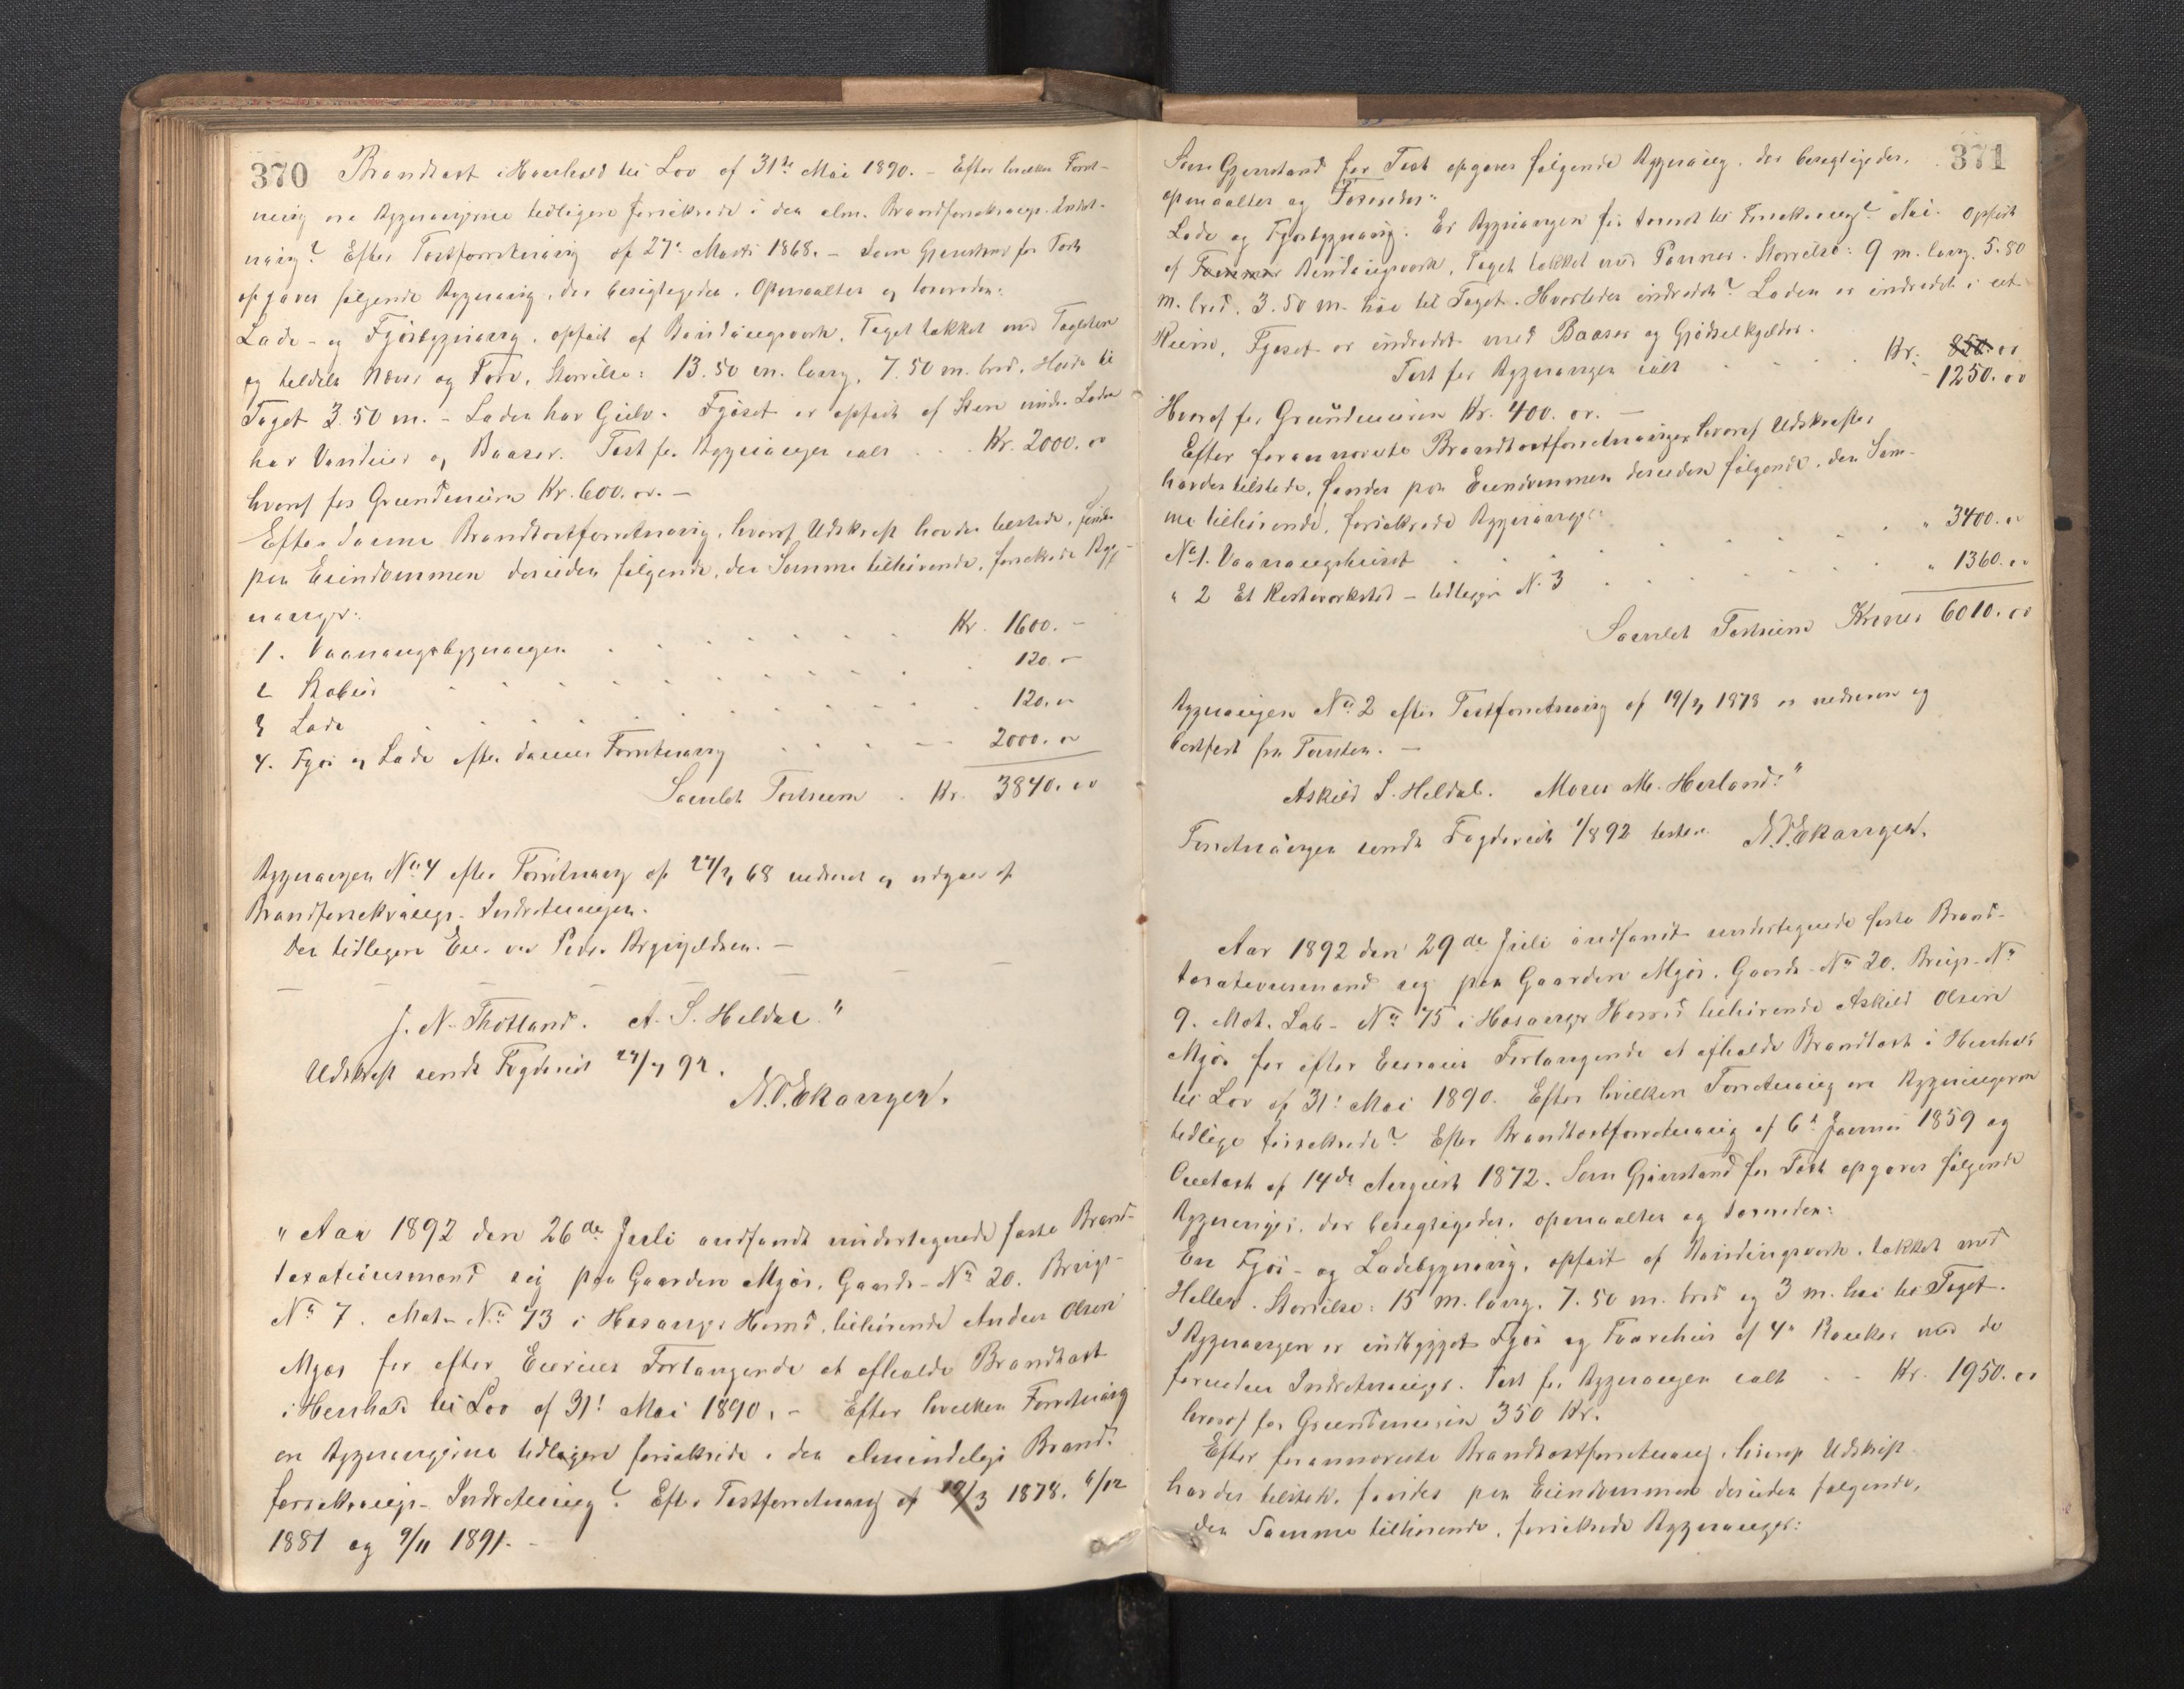 370 Brandtaxt i Henhold til Lov af 31te Mai 1890. – Efter hvilken Forret-
ning ere Bygningerne tidligere forsikrede i den alm. Brandforsikrings-Indret-
ning? Efter Taxtforretning af 27de Marts 1868. – Som Gjenstand for Taxt
opgaves følgende Bygning, der besigtigedes, opmaaltes og taxeredes:
Lade- og Fjøsbygning, opført af Bindingsverk, Taget tækket med Tagsten
og tildels Næver og Torv, Størrelse: 13.50 m. lang, 7.50 m. bred, Høide til
Taget 3.50 m. – Laden har Gulv. Fjøset er opført af Sten under Laden
har og Baaser. Taxt for Bygningen ialt . . Kr. 2000.00
hvoraf for Grundmuren Kr. 600.00. –
Efter denne Brandtaxtforretning, hvoraf Udskrift havdes tilstede, findes
paa Eiendommen desuden følgende, den Samme tilhørende, forsikrede Byg-
ninger:
1. Vaaningsbygningen . . . . . Kr. 1600. –
2 Stabur . . . . . 120. –
3 Lade . . . . . 120.00
4. Fjøs og Lade efter denne Forretning . . . . 2000.00
Samlet Taxtsum . Kr. 3840.00
Bygningen No 4 efter Forretning af 27/3 68 nedrevet og udgaar af
Brandforsikrings-Indretningen.
Den tidligere Eier var Peder Brynjeldsen. –
J. N. Thotland. A. S. Heldal."
Udskrift sendt Fogderiet 27/7 92.
N. O. Ekanger.
"Aar 1892 den 26de Juli indfandt undertegnede faste Brand-
taxationsmænd sig paa Gaarden Mjøs, Gaards-No 20. Brugs-
No 7. Mat.-No 73 i Hosanger Herred, tilhørende Anders Olsen
Mjøs for efter Eierens Forlangende at afholde Brandtaxt
i Henhold til Lov af 31' Mai 1890. – Efter hvilken Forretning
ere Bygningerne tidligere forsikrede i den almindelige Brand-
forsikrings-Indretning? Efter Taxtforretning af 19/3 1878. 6/12
1881 og 9/11 1891. –
371
Som Gjenstand for Taxt opgaves følgende Bygning, der besigtigedes,
opmaaltes og Taxeredes:
Lade og Fjøsbygning. Er Bygningen før taxeret til Forsikring? Nei. Opført
af Bindingsverk, Taget tækket med Panner. Størrelse: 9 m. lang, 5.50
m. bred, 3.50 m. høi til Taget. Hvorledes indredet? Laden er indredet i et
Rum, Fjøset er indredet med Baaser og Gjødselkjelder.
Taxt for Bygningen ialt . . . . Kr. 850.00
– 1250.00
Hvoraf for Grundmuren Kr. 400.00. –
Efter forannævnte Brandtaxtforretninger hvoraf Udskrifter
havdes tilstede, findes paa Eiendommen desuden følgende, den Sam-
me tilhørende, forsikrede Bygninger:
No 1. Vaaningshuset . . . . . " 3400.00
" 2 Et – tidligere N. 3 . . . . . " 1360.00
Samlet Taxtsum Kroner 6010.00
Bygningen No 2 efter Taxtforretning af 19/3 1878 er nedreven og
bortført fra Tomten. –
Askild S. Heldal. Mons M. Herland."
Forretningen sendt Fogderiet 1/8 92 N. O. Ekanger.
Aar 1892 den 29de Juli indfandt undertegnede faste Brand-
taxationsmænd sig paa Gaarden Mjøs, Gaards-No 20. Brugs-No
9. Mat. Løb-No 75 i Hosanger Herred tilhørende Askild Olsen
Mjøs for efter Eierens Forlangende at afholde Brandtaxt i Henhold
til Lov af 31' Mai 1890. Efter hvilken Forretning ere Bygningerne
tidlige forsikrede? Efter Brandtaxtforretning af 6' Januar 1859 og
Omtaxt af 14de August 1872. Som Gjenstand for Taxt opgaves følgende
Bygninger, der besigtigedes, opmaaltes og taxeredes:
En Fjøs- og Ladebygning, opført af Bindingsverk, tækket med
Heller. Størrelse: 15 m. lang, 7.50 m. bred og 3 m. høi til Taget.
I Bygningen er indbygget Fjøs og Tværhus af med de
fornødne Indretninger. Taxt for Bygningen ialt . . Kr. 1950.00
hvoraf for Grundmuren 350 Kr.
Efter forannævnte Brandtaxtforretning, hvoraf Udskrift
havdes tilstede, findes paa Eiendommen desuden følgende,
den Samme tilhørende, forsikrede Bygninger: